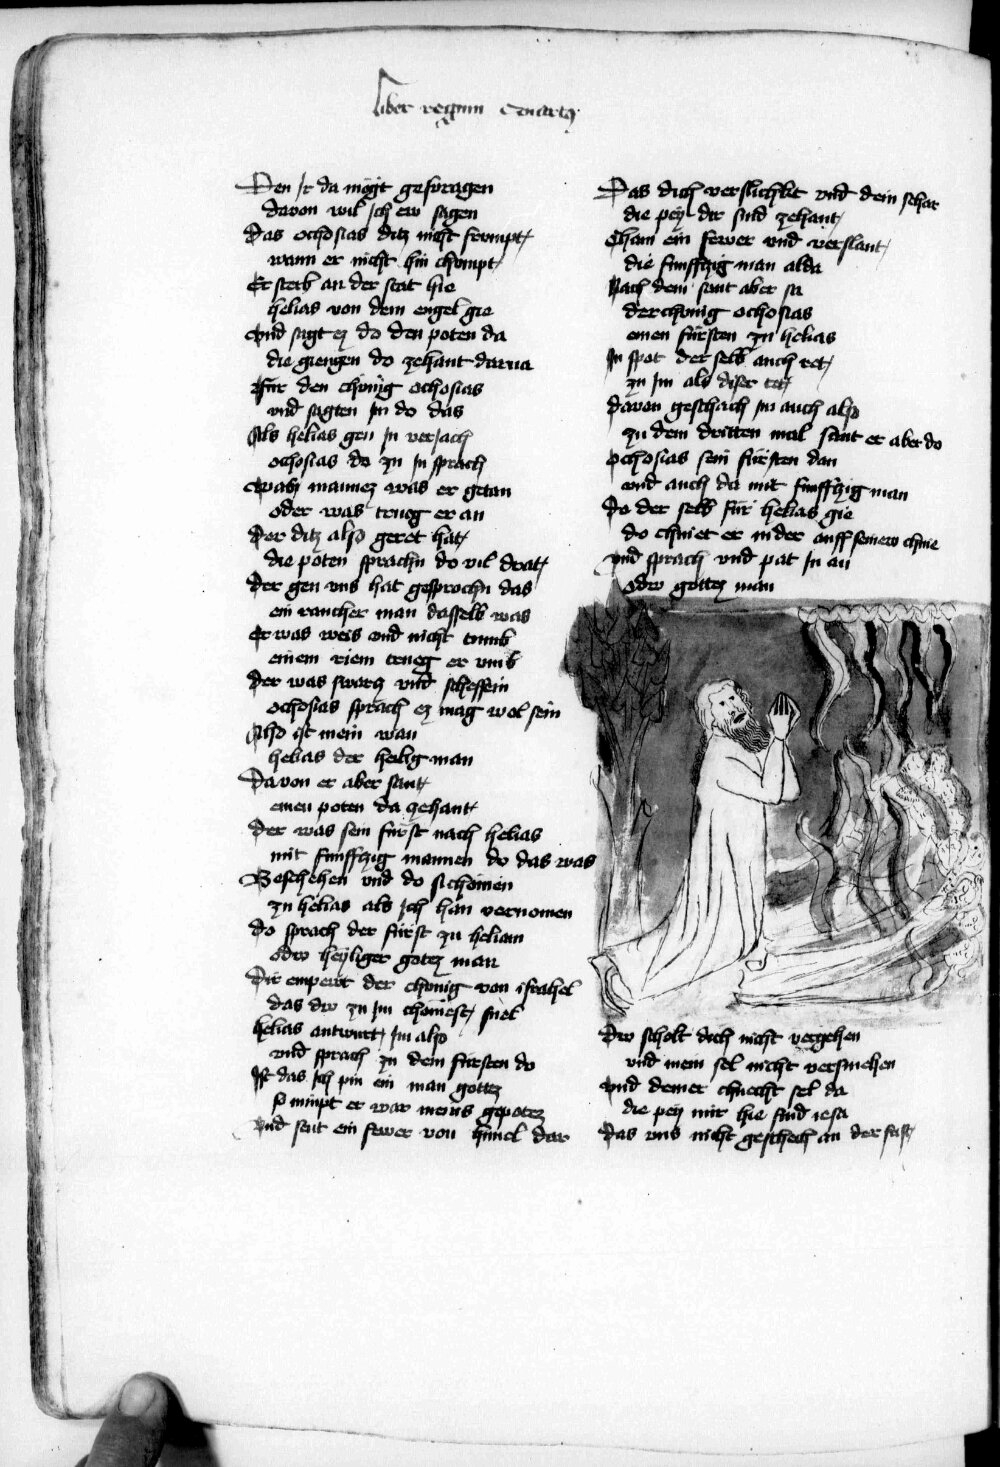 liber regum quartus
Den jr da mögt gefragen
davon wil jch ew sagen
Das ochosias ditz nicht frumpt
wann er nicht hin chumpt
Er sterb an der stat hie
helias von dem engel gie
vnd sagt ez do den poten da
die giengen do zehant darna
für den chünig ochosias
vnd sagten jm do das
Als helias gen jn verjach
ochosias do zu jn sprach
waz mannez was er getan
oder was trueg er an
Der ditz also geret hat
die poten sprachn do vil drat
Der gen vns hat gesprochn das
ein raucher man dasselb was
Er was weis vnd nicht tumb
einem riem trueg er vmb
der was swarcz vnd scheffein
ochosias sprach ez mag wol sein
Also ist mein wan
helias der heilig man
Davon er aber sant
einen poten da zehant
der was sein fürst nach helias
mit funffczig mannen do das was
Beschehen vnd do si chömen
zu helias als jch han vernomen
do sprach der fürst zu heliam
o dw heyliger gotez man
Dir empewt der chünig von israhel
das dw zu jm chömest snel
helias antwurt jm also
vnd sprach zu dem fürsten do
Ist das jch pin ein man gottez
so nimpt er war meins gepotez
vnd sent ein fewer von himel dar
Das dich verslichkt vnd dein schar
die pey dir sind zehant
Cham ein fewer vnd verslant
die funffczig man alda
Nach dem sant aber sa
der chünig ochosias
einen fürsten zu helias
In spot der selb auch ret
zu jm als diser tet
davon geschach jm auch also
zu dem dritten mal sant er aber do
ochosias sein fürsten dan
vnd auch da mit funffczig man
Do der selb für helias gie
do chniet er nider auff seinew chnie
vnd sprach vnd pat jn an
o dw gottez man
Dw scholt dich nicht vergehen
vnd mein sel nicht versmehen
vnd deiner chnecht sel da
die pey mir hie sind iesa
das vns nicht geschech an der frist